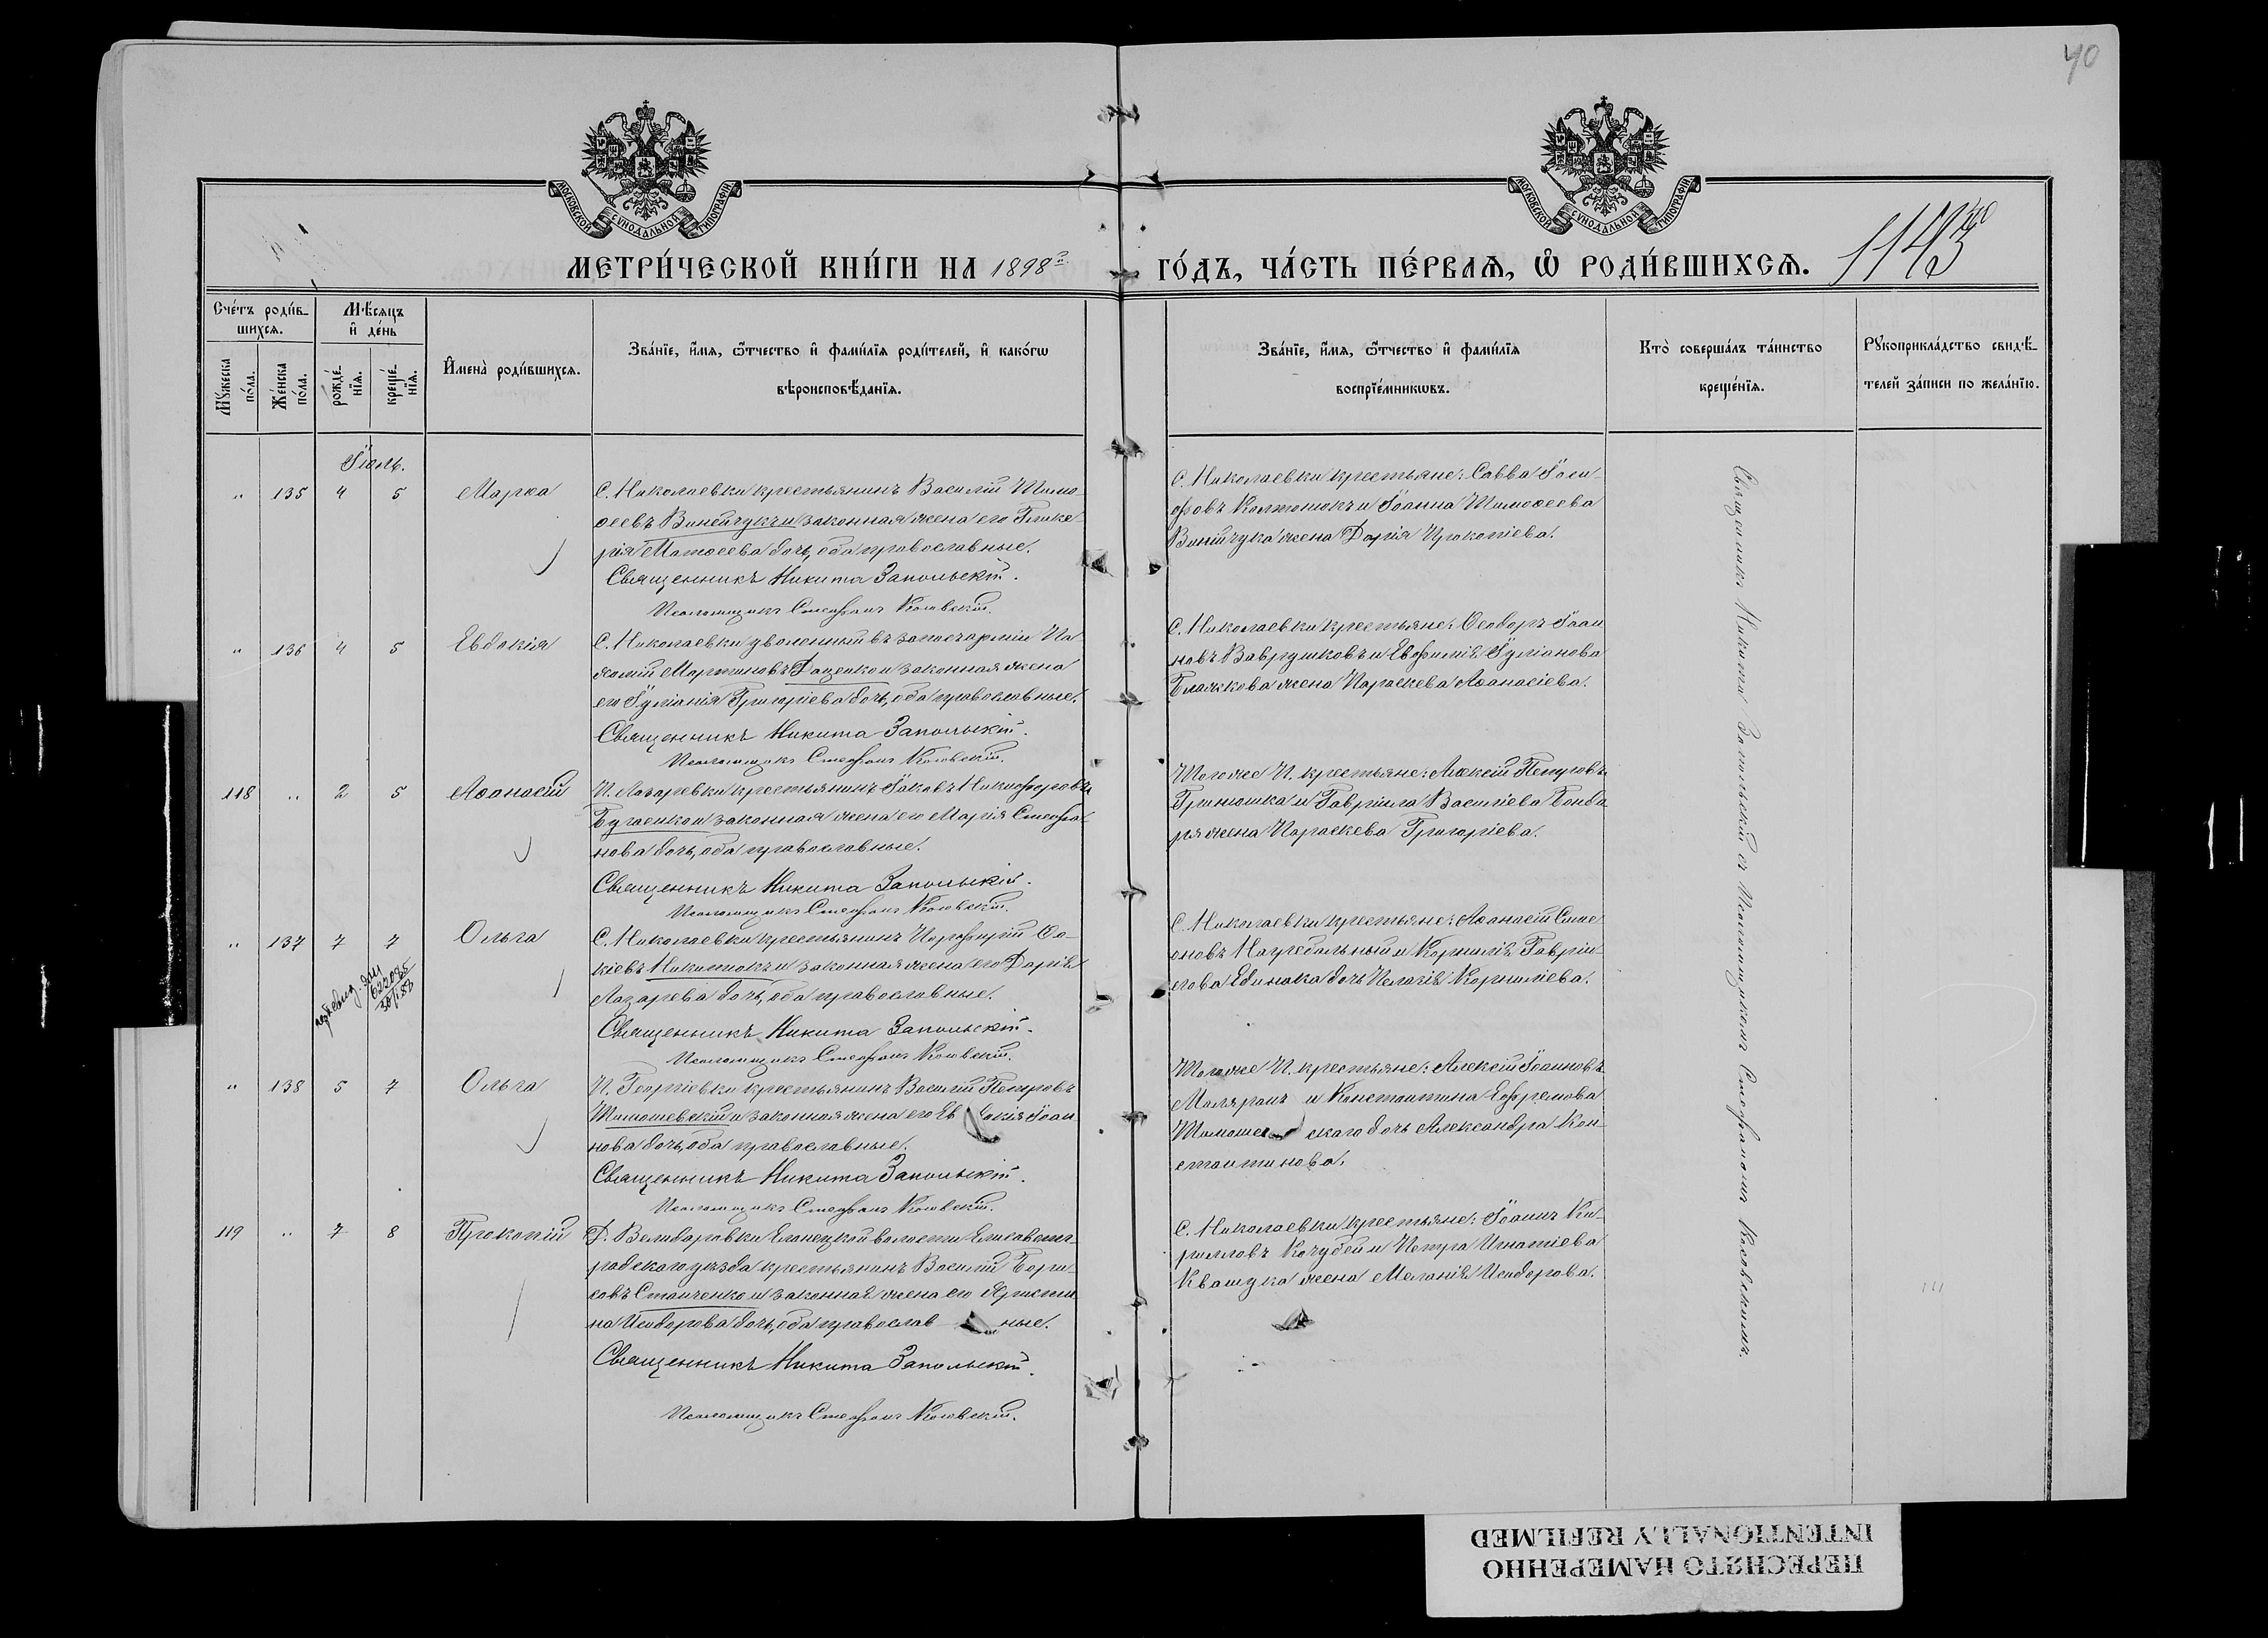 40
МОСКОВСКОЙ СѴНОДАЛЬНОЙ ТИПОГРАФІИ
МОСКОВСКОЙ СѴНОДАЛЬНОЙ ТИПОГРАФІИ
МЕТРИ́ЧЕСКОЙ КНИ́ГИ НА 1898й ГО́ДЪ, ЧА́СТЬ ПЕ́РВАѦ, Ѽ РОДИ́ВШИХСѦ.
1143
Сче́тъ роди́в-
шихсѧ.
Мѣ́сѧцъ
и҆ де́нь
Мꙋ́жеска
по́ла.
Же́нска
по́ла.
рожде́-
нїѧ.
креще́-
нїѧ.
И҆мена̀ роди́вшихсѧ.
Зва́нїе, и҆́мѧ, ѻ҆́тчество и҆ фами́лїѧ роди́телей, и҆ како́гѡ
вѣроисповѣ́данїѧ.
Зва́нїе, и҆́мѧ, ѻ҆́тчество и҆ фами́лїѧ
воспрїе́мникѡвъ.
Кто̀ соверша́лъ та́инство
креще́нїѧ.
Рꙋкоприкла́дство свидѣ́-
телей за́писи по жела́нїю.
Іюль.
„ 135 4 5 Марѳа
С. Николаевки крестьянинъ Василій Тимо-
ѳеевъ Винейчукъ и законная жена его Глике-
рія Матѳеева дочь, оба православные.
Священникъ Никита Запольскій.
Псаломщикъ Стефанъ Косовскій.
С. Николаевки крестьяне: Савва Іоси-
фовъ Колтонюкъ и Іоанна Тимоѳеева
Винійчука жена Дарія Прокопіева.
„ 136 4 5 Евдокія
С. Николаевки уволенный въ запасъ арміи Па-
хомій Мартиновъ Даценко и законная жена
его Іуліанія Григоріева дочь, оба православные.
Священникъ Никита Запольскій.
Псаломщикъ Стефанъ Косовскій.
С. Николаевки крестьяне: Ѳеодоръ Іоан-
новъ Ваврушковъ и Евфимія Іуліанова
жена Параскева Аѳанасіева.
118 „ 2 5 Аѳанасій
П. Лазаревки крестьянинъ Іаковъ Никифоровъ
Бугаенко и законная жена его Марія Стефа-
нова дочь, оба православные.
Священникъ Никита Запольскій.
Псаломщикъ Стефанъ Косовскій.
Того же П. крестьяне: Алексій Петровъ
Гринюшка и Гавріила Василіева Бонда-
ря жена Параскева Григоріева.
„ 137 7 7 Ольга
С. Николаевки крестьянинъ Порфирій Фо-
кіевъ Никитюкъ и законная жена его Дарія
Лазарева дочь, оба православные.
Священникъ Никита Запольскій.
Псаломщикъ Стефанъ Косовскій.
С. Николаевки крестьяне: Аѳанасій Симе-
оновъ Нагребальный и Корнилія Гавріи-
лова Единака дочь Пелагія Корниліева.
„ 138 5 7 Ольга
П. Георгіевки крестьянинъ Василій Петровъ
Томашевскій и законная жена его Евдокія Іоан-
нова дочь, оба православные.
Священникъ Никита Запольскій.
Псаломщикъ Стефанъ Косовскій.
Того же П. крестьяне: Алексій Іоанновъ
Маляранъ и Константина Ефремова
Томашевскаго дочь Александра Кон-
стантинова.
119 „ 7 8 Прокопій
Д. Велидаровки Еланецкой волости Елисаветг-
радскаго уѣзда крестьянинъ Василій Бори-
совъ Станченко и законная жена его Христи-
на Исидорова дочь, оба православные.
Священникъ Никита Запольскій.
Псаломщикъ Стефанъ Косовскій.
С. Николаевки крестьяне: Іоаннъ Ки-
рилловъ Кочубей и Петра Игнатіева
Квашука жена Меланія Исидорова.
Священникъ Никита Запольскій съ Псаломщикомъ Стефаномъ Косовскимъ.
ПЕРЕСНЯТО НАМЕРЕННО
INTENTIONALLY REFILMED